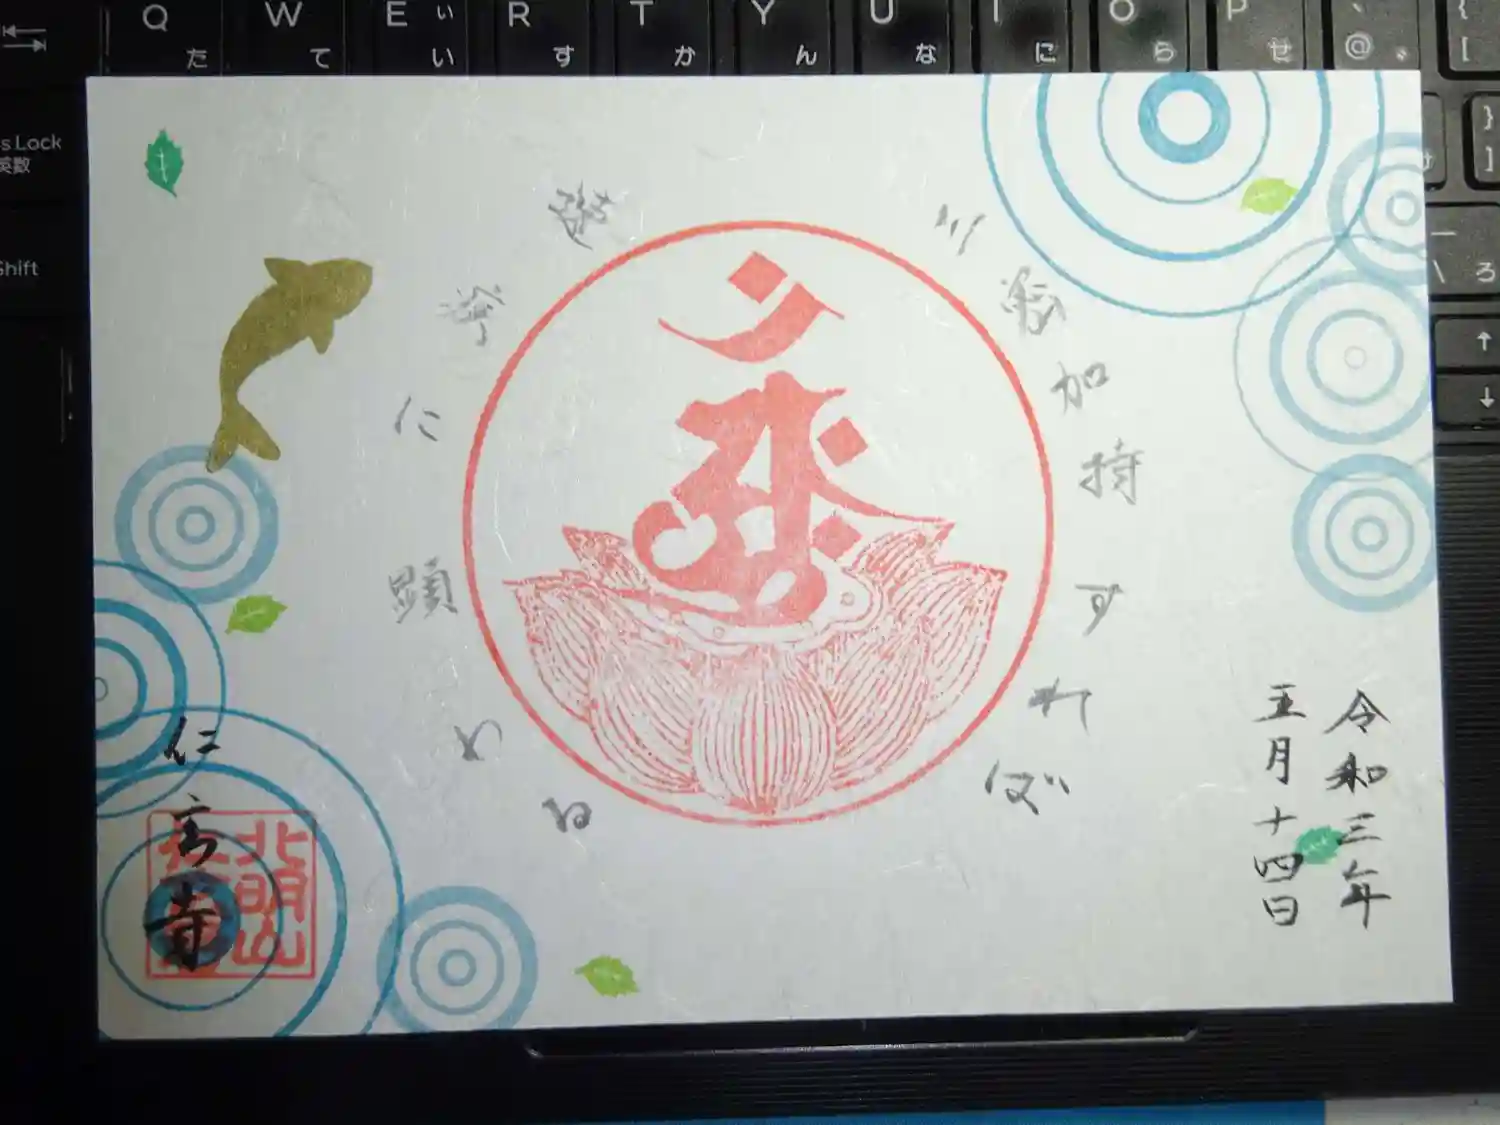 Q W E ぃ R T Y U I O P
た て い す か ん な に ら せ @ [
s Lock
英数
Shift
ろ
三密加持すれば
速疾に顕わる
令和三年
五月十四日
北明山